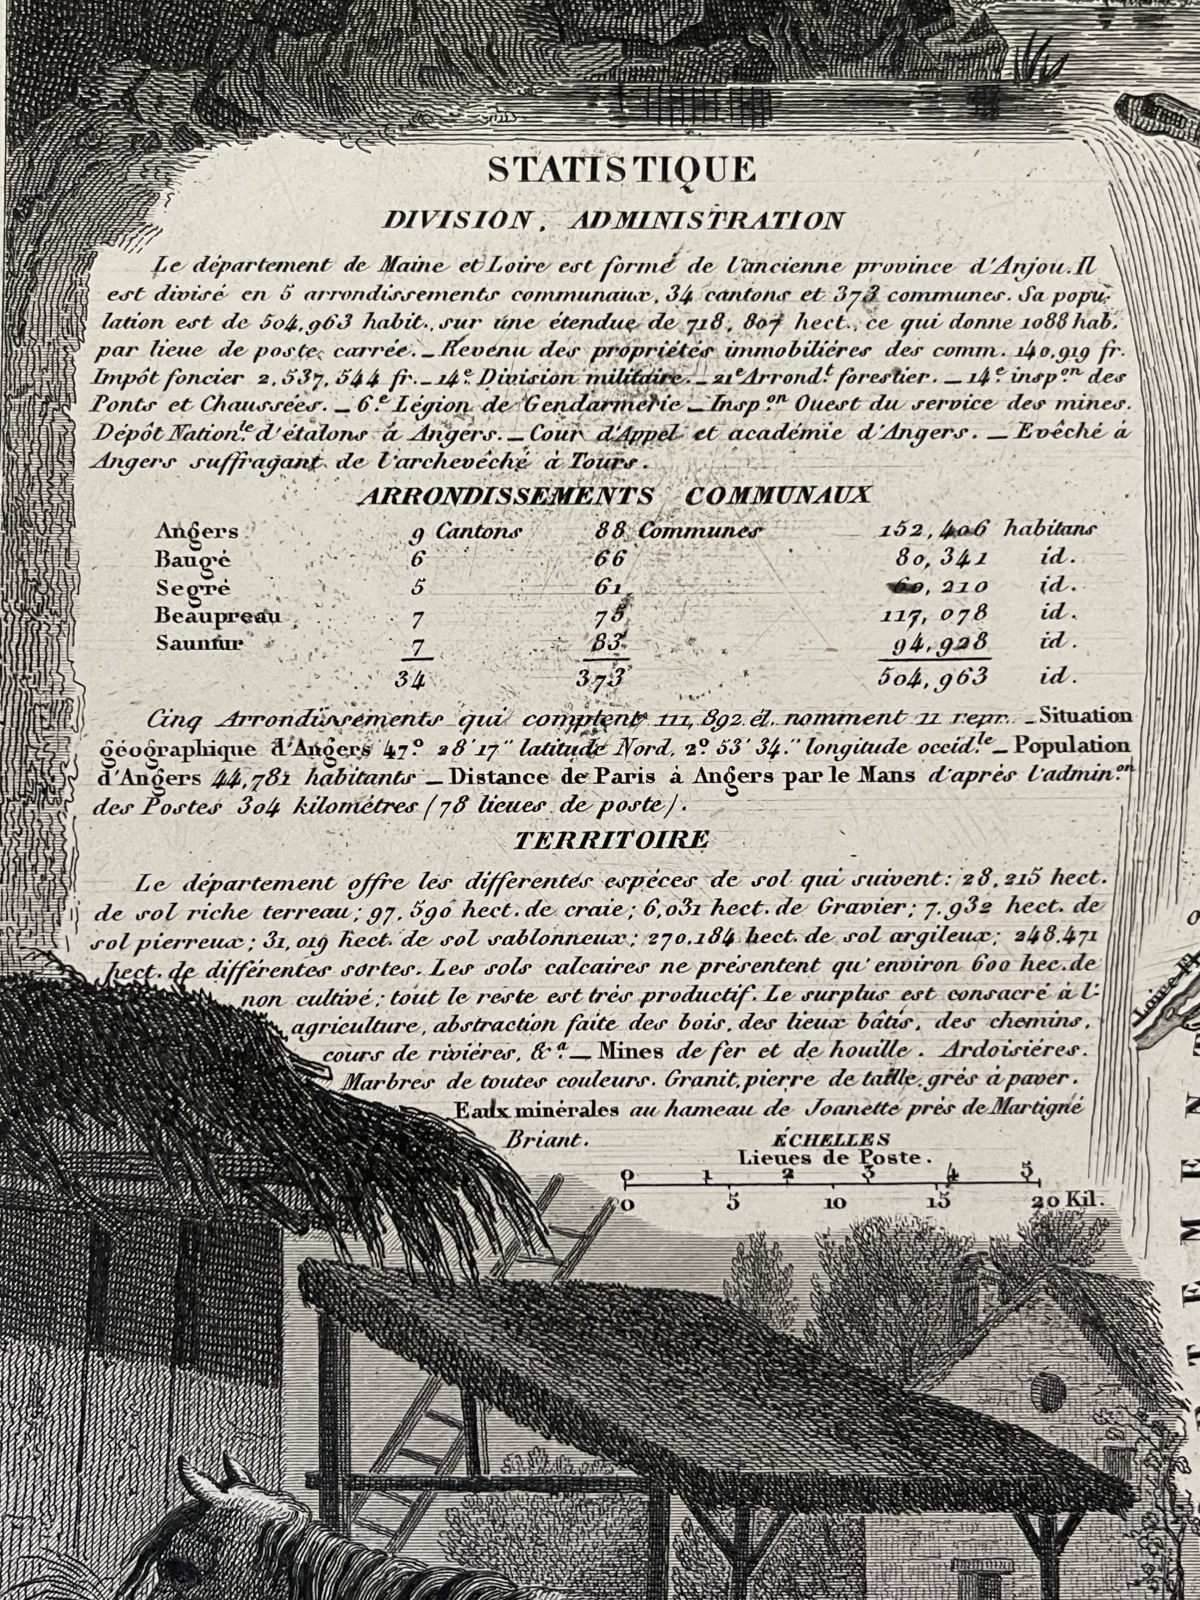 STATISTIQUE
DIVISION, ADMINISTRATION
Le département de Maine et Loire est formé de l'ancienne province d'Anjou. Il
est divisé en 5 arrondissements communaux, 34 cantons et 373 communes. Sa popu-
lation est de 504,963 habit., sur une étendue de 718,807 hect., ce qui donne 1088 hab.
par lieue de poste carrée. _ Revenu des propriétés immobiliéres des comm. 140,919 fr.
Impôt foncier 2,537,544 fr. _ 14.e Division militaire. _ 21e Arrond.t forestier. _ 14.e insp.on des
Ponts et Chaussées. _ 6.e Légion de Gendarmerie _ Insp.on Ouest du service des mines.
Dépôt Nation.le d'étalons à Angers. _ Cour d'Appel et académie d'Angers. _ Evêché à
Angers suffragant de l'archevêché à Tours.
ARRONDISSEMENTS COMMUNAUX
Angers 9 Cantons 88 Communes 152,406 habitans
Baugé 6 66 80,341 id.
Segré 5 61 60,210 id.
Beaupreau 7 75 117,078 id.
Saumur 7 83 94,928 id.
34 373 504,963 id.
Cinq Arrondissements qui comptent 111,892 él. nomment 11 repr. _ Situation
géographique d'Angers 47.º 28' 17" latitude Nord, 2º 53' 34." longitude occid.le _ Population
d'Angers 44,781 habitants _ Distance de Paris à Angers par le Mans d'après l'admin.on
des Postes 304 kilométres (78 lieues de poste).
TERRITOIRE
Le département offre les differentes espéces de sol qui suivent: 28,215 hect.
de sol riche terreau; 97,590 hect. de craie; 6,031 hect. de Gravier; 7,932 hect. de
sol pierreux; 31,019 hect. de sol sablonneux; 270,184 hect. de sol argileux; 248,471
hect. de différentes sortes. Les sols calcaires ne présentent qu'environ 600 hec. de
non cultivé; tout le reste est très productif. Le surplus est consacré à l'-
agriculture, abstraction faite des bois, des lieux bâtis, des chemins,
cours de riviéres, &.a _ Mines de fer et de houille. Ardoisiéres.
Marbres de toutes couleurs. Granit, pierre de taille, grés à paver.
Eaux minérales au hameau de Joanette prés de Martigné
Briant.
ÉCHELLES
Lieues de Poste.
0 1 2 3 4 5
0 5 10 15 20 Kil.
Loire Fl.
T E M E N T